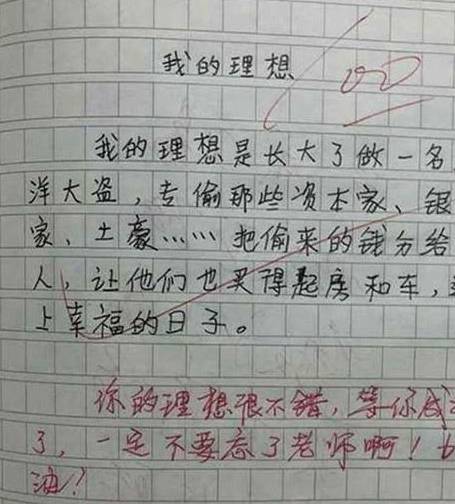 我的理想
我的理想是长大了做一名
洋大盗,专偷那些资本家、银
家、土豪……把偷来的钱分给
人,让他们也买得起房和车,
上幸福的日子。
你的理想很不错,等你成
了,一定不要忘了老师啊!
油!